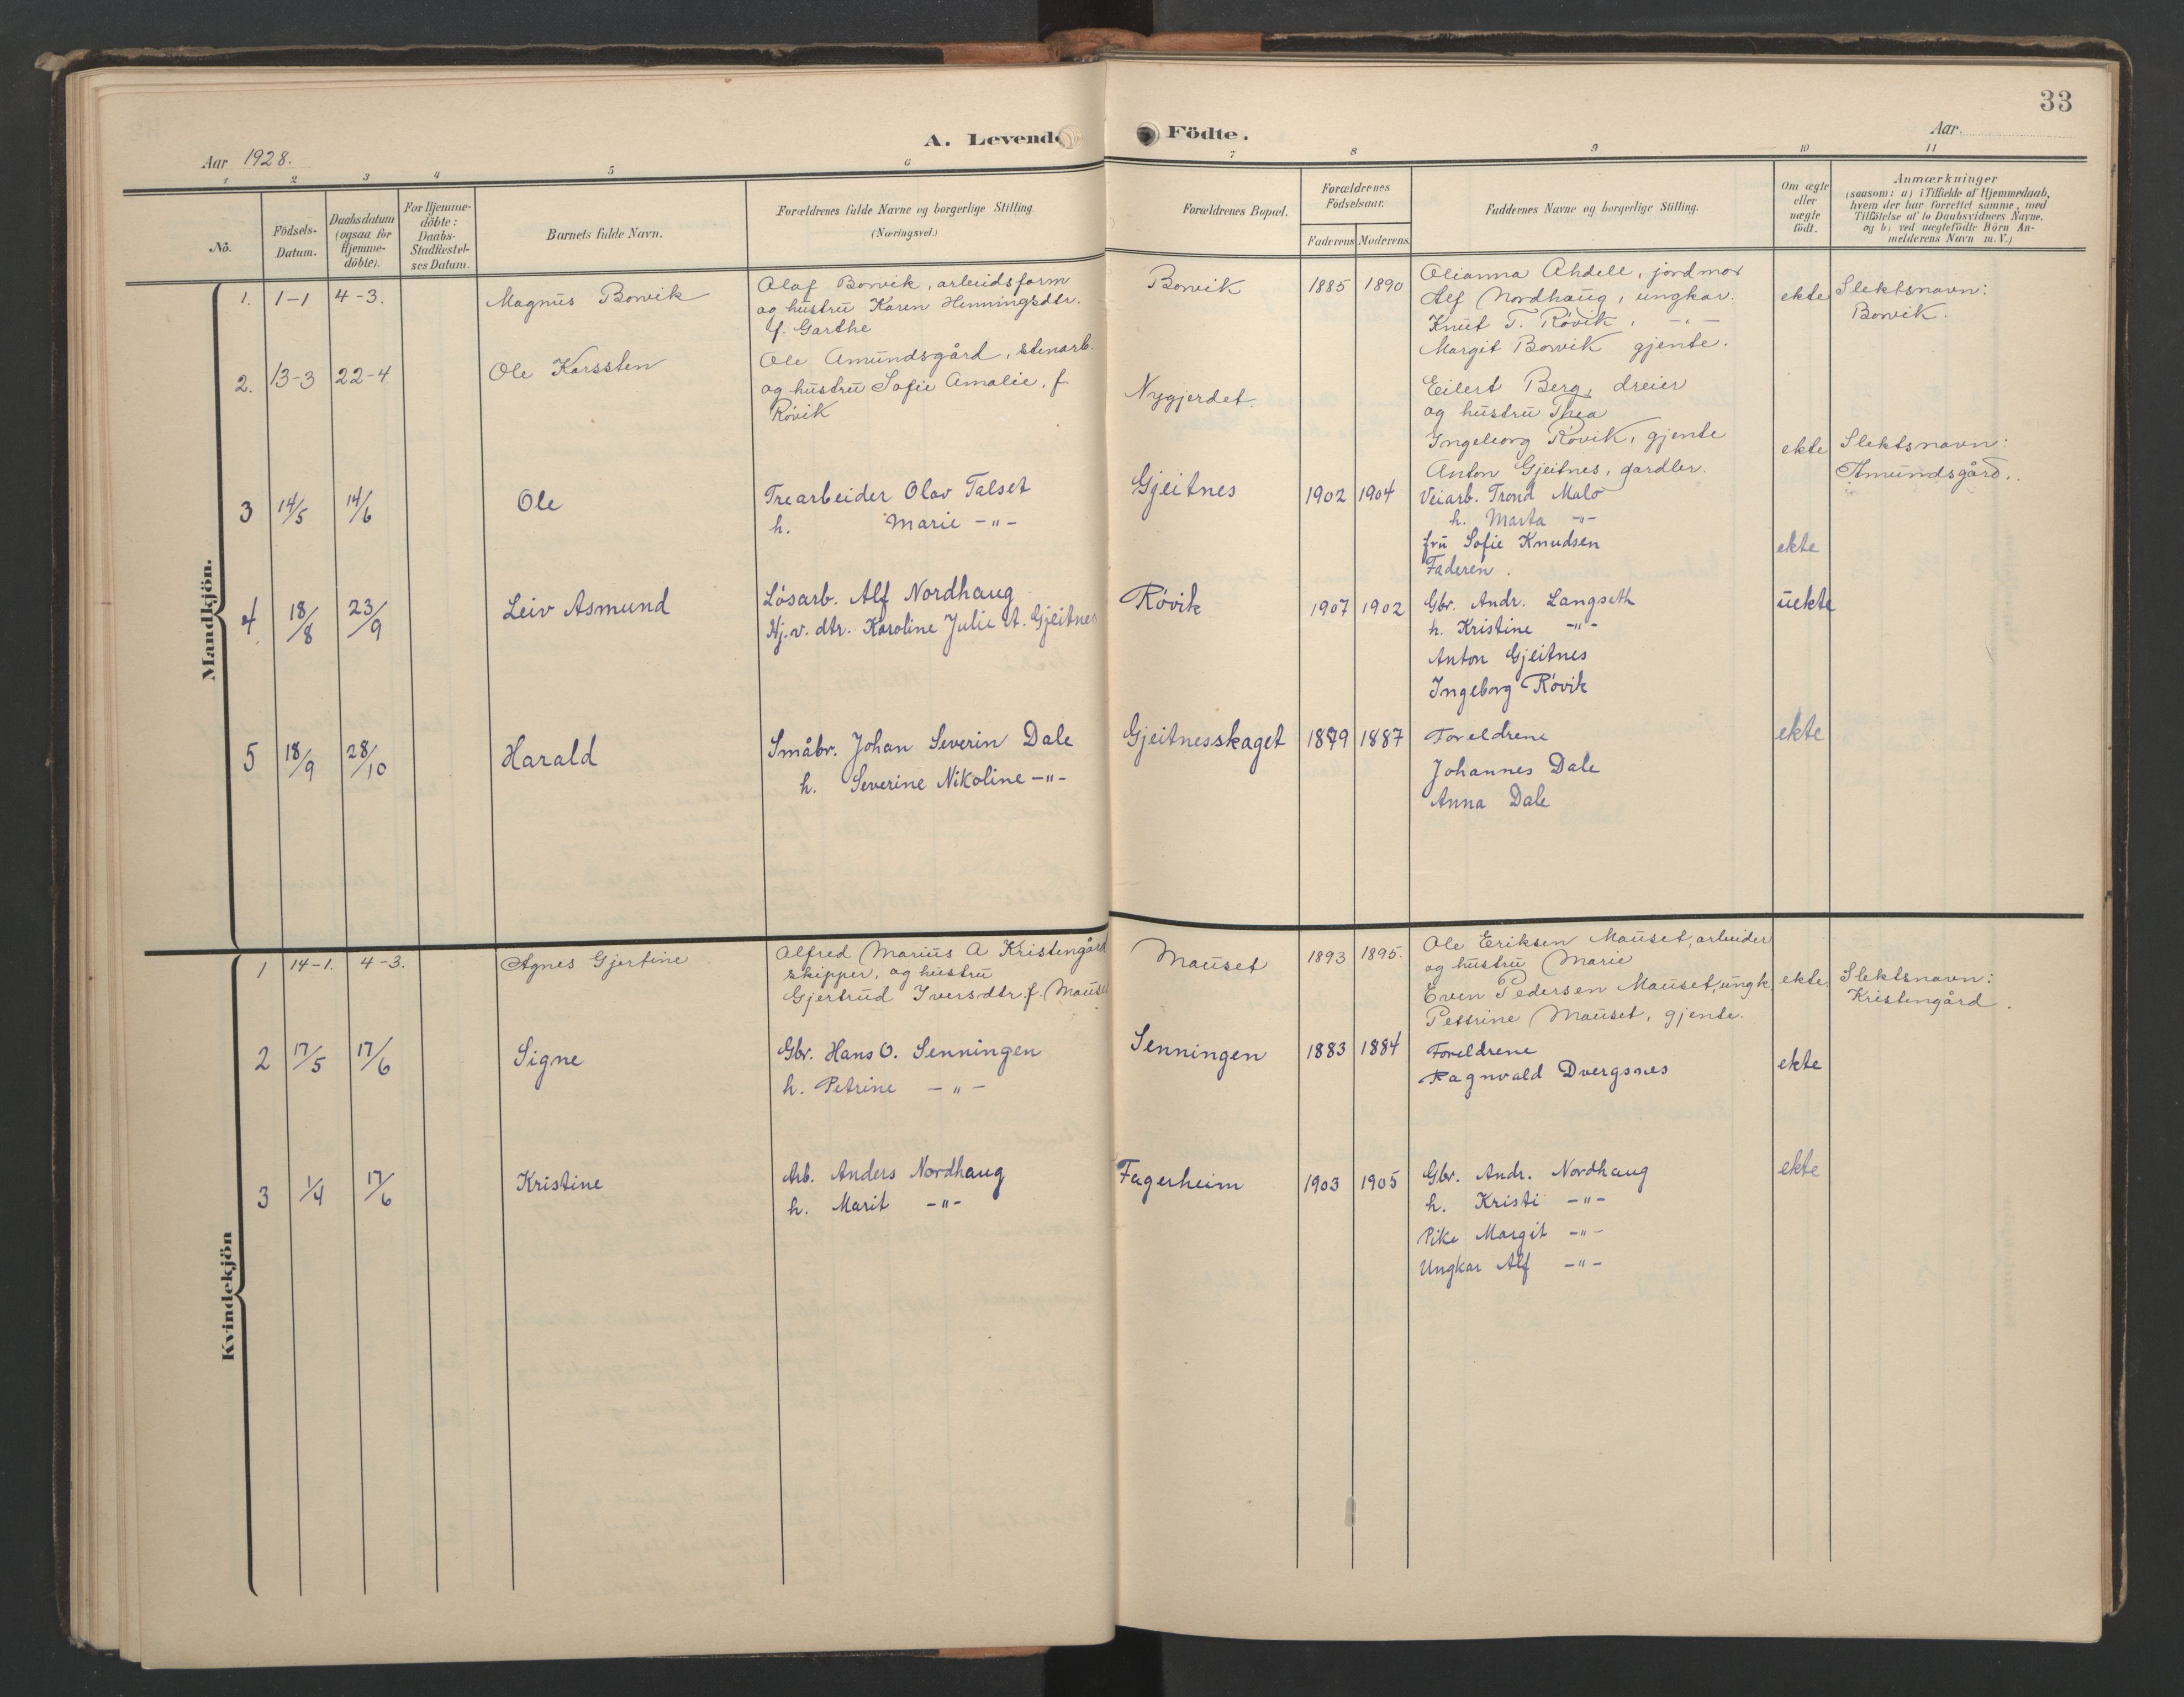 33
A. Levende Födte.
Aar 1928.
Aar.
1 2 3 4 5 6 7 8 9 10 11
No.
Födsels-
Datum.
Daabsdatum
(ogsaa for
Hjemme-
döbte).
For Hjemme-
döbte:
Daabs-
Stadfæstel-
ses Datum.
Barnets fulde Navn.
Forældrenes fulde Navne og borgerlige Stilling
(Næringsvei.)
Forældrenes Bopæl.
Forældrenes
Födselsaar.
Faderens Moderens.
Faddernes Navne og borgerlige Stilling.
Om ægte
eller
uægte
födt.
Anmærkninger
(saasom: a) i Tilfælde af Hjemmedaab,
hvem der har forrettet samme, med
Tilföielse af to Daabsvidners Navne.
og b) ved uægtefödte Börn An-
melderens Navn m. V.)
Mandkjön.
1. 1-1 4-3. Magnus Borvik
Olaf Borvik, arbeidsform
og hustru Karen Henningsdtr.
f. Garthe
Borvik 1885 1890
Olianna Ahdell, jordmor
Alf Nordhaug, ungkar.
Knut T. Rövik, -"-
Margit Borvik gjente.
ekte
Slektsnavn:
Borvik.
2. 13-3 22-4 Ole Karsten
Ole Amundsgård, stenarb.
og hustru Sofie Amalie, f.
Rövik
Nygjerdet.
Eilert Berg, dreier
og hustru Thea
Ingeborg Rövik, gjente
Anton Gjeitnes, gardbr.
ekte
Slektsnavn:
Amundsgård.
3 14/5 14/6 Ole
Trearbeider Olav Talset
h. Marie -"-
Gjeitnes 1902 1904
Veiarb. Trond Malo
h. Marta -"-
fru Sofie Knudsen
Faderen.
ekte
4 18/8 23/9 Leiv Asmund
Lösarb. Alf Nordhaug
Hj.v. dtr. Karoline Julie A. Gjeitnes
Rövik 1907 1902
Gbr. Andr. Langseth
h. Kristine -"-
Anton Gjeitnes
Ingeborg Rövik
uekte
5 18/9 28/10 Harald
Småbr. Johan Severin Dale
h. Severine Nikoline -"-
Gjeitnesskaget 1879 1887
Foreldrene
Johannes Dale
Anna Dale
ekte
Kvindekjön
1 14-1. 4-3. Agnes Gjertine
Alfred Marius A Kristengård
skipper, og hustru
Gjertrud Iversdtr. f. Mauset
Mauset 1893 1895.
Ole Eriksen Mauset, arbeider
og hustru Marie
Even Pedersen Mauset, ungk.
Petrine Mauset, gjente.
ekte.
Slektsnavn:
Kristengård.
2 17/5 17/6 Signe
Gbr. Hans O. Senningen
h. Petrine -"-
Senningen 1883 1884
Foreldrene
Ragnvald Dvergsnes
ekte
3 1/4 17/6 Kristine
Arb. Anders Nordhaug
h. Marit -"-
Fagerheim 1903 1905
Gbr. Andr. Nordhaug
h. Kristi -"-
Pike Margit -"-
Ungkar Alf -"-
ekte